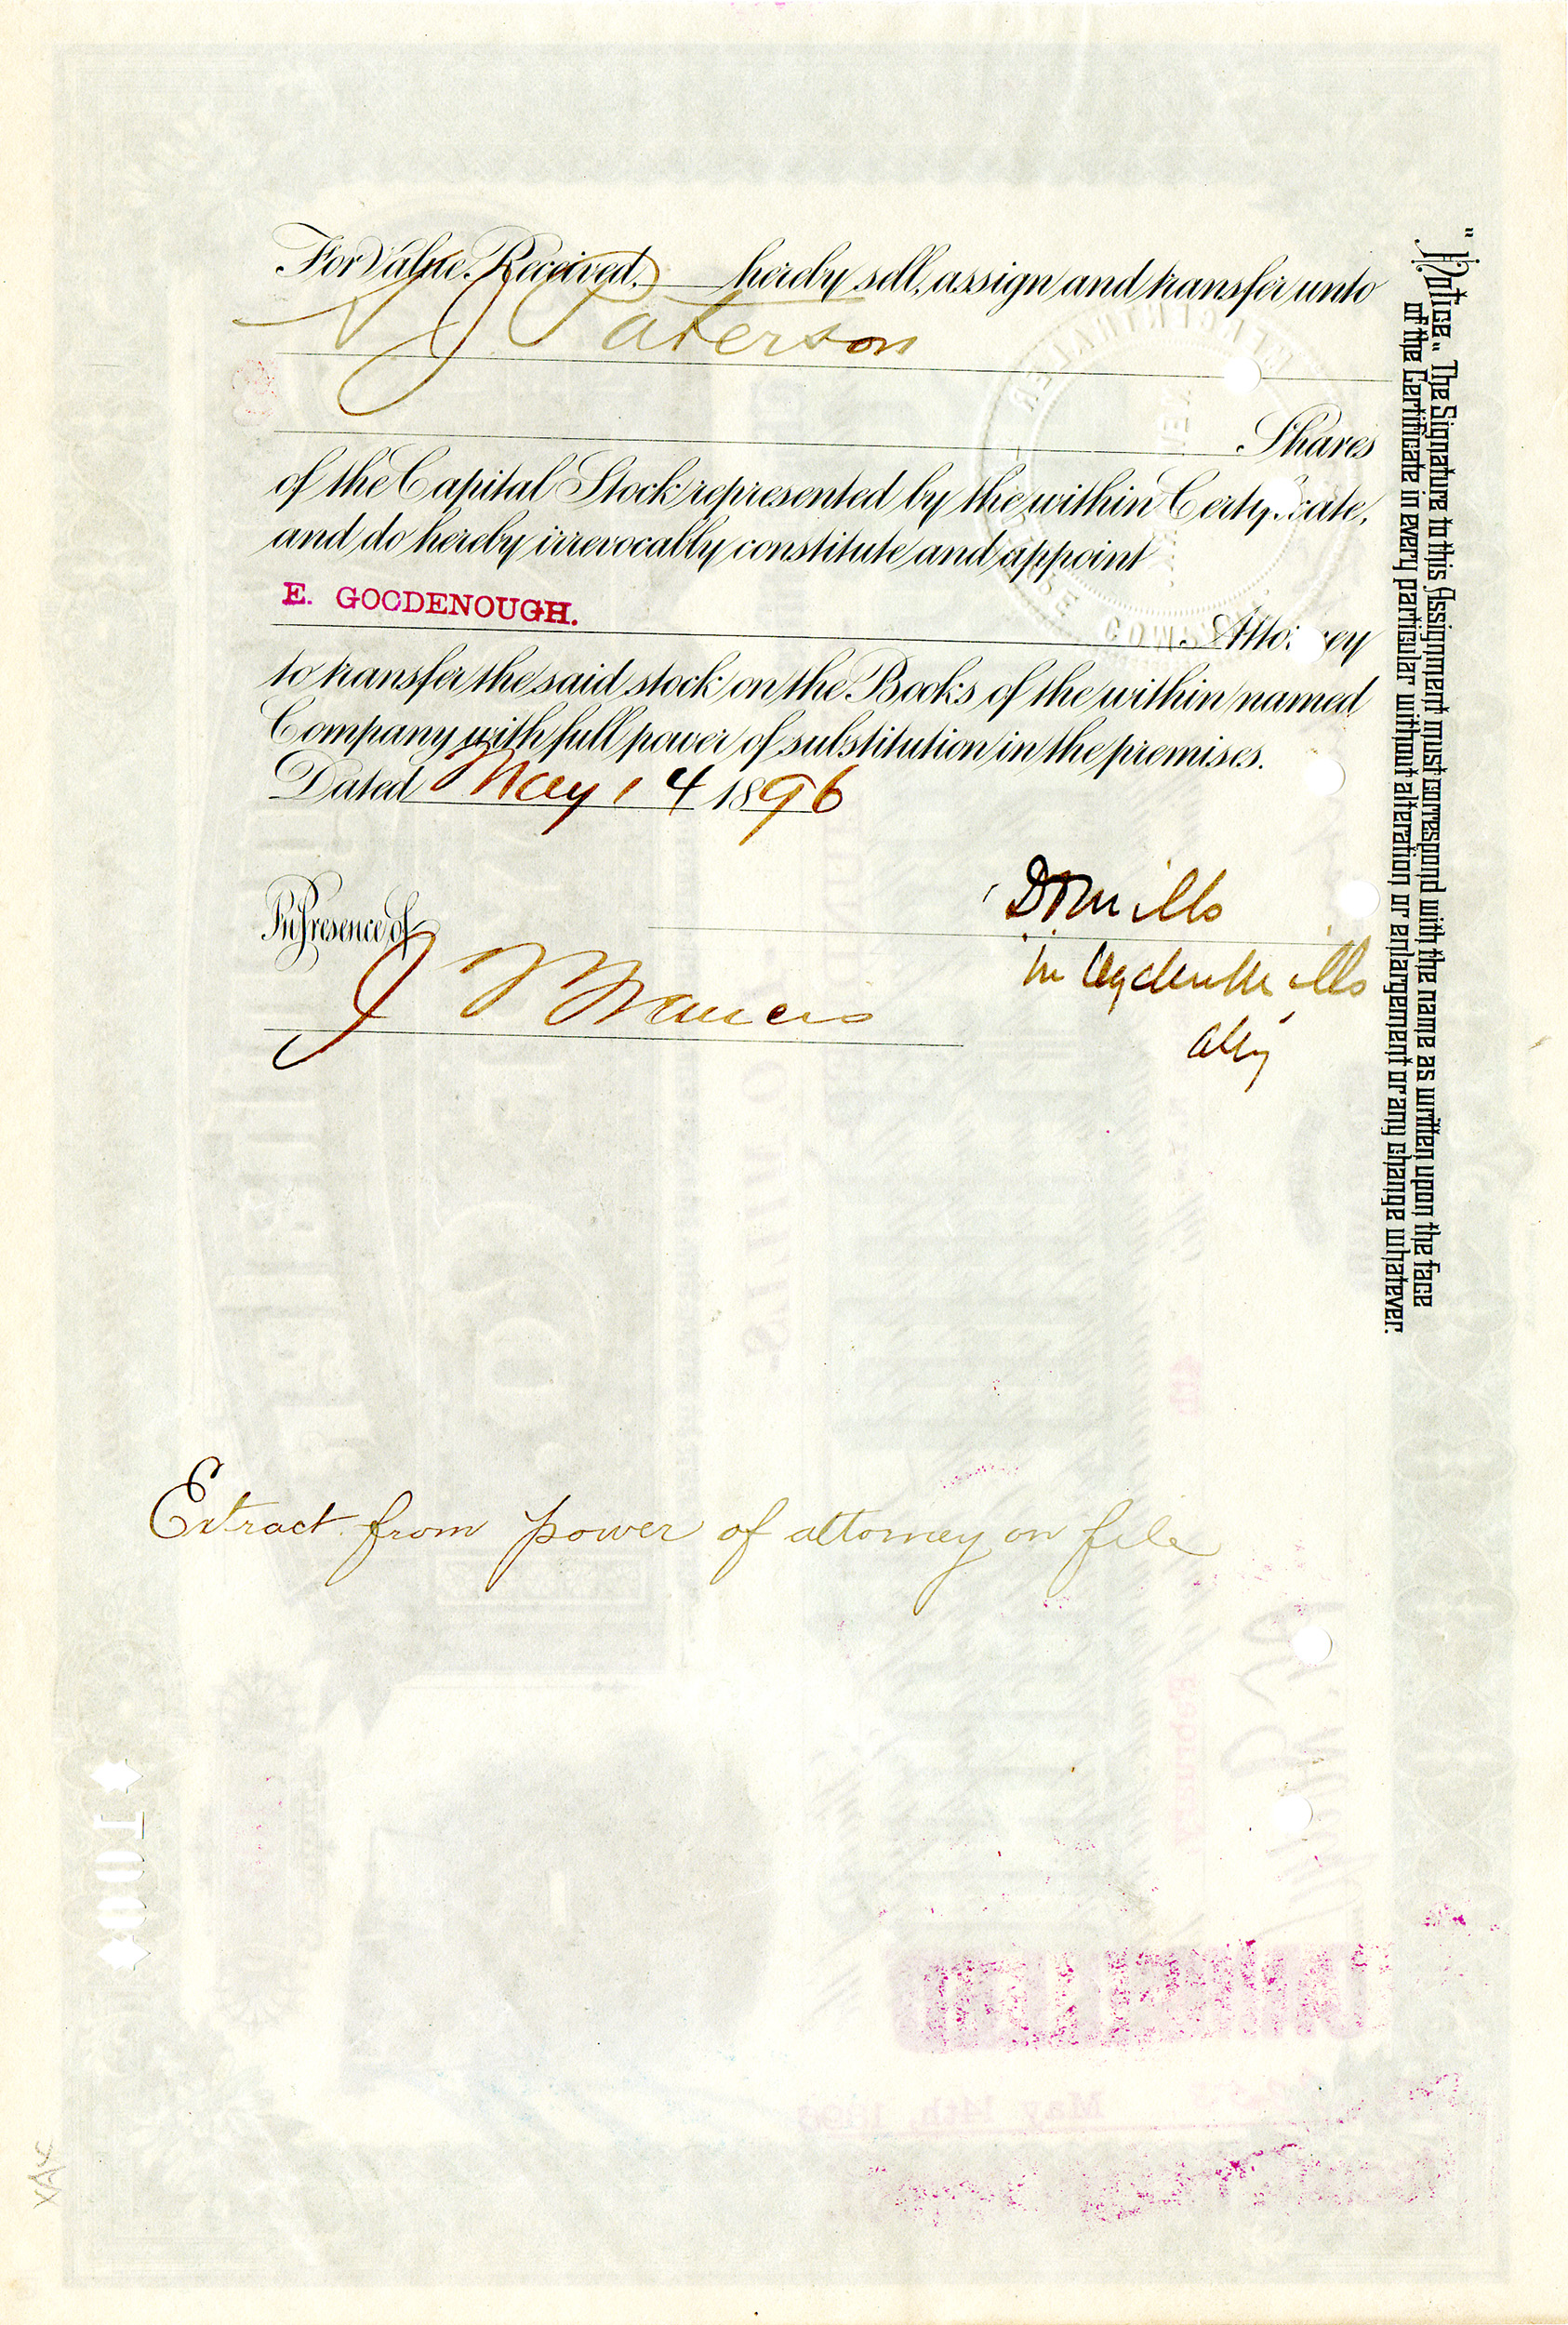 For Value Received, hereby sell, assign and transfer unto
Paterson
Shares
of the Capital Stock represented by the within Certificate,
and do hereby irrevocably constitute and appoint
E. GOODENOUGH.
Attorney
to transfer the said stock on the Books of the within named
Company with full power of substitution in the premises.
Dated May 14 1896
In Presence of
D O Mills
by Ogden Mills
atty
J Francis
Extract from power of attorney on file
"Notice." The Signature to this Assignment must correspond with the name as written upon the face
of the Certificate in every particular without alteration or enlargement or any change whatever.
CANCELLED
May 14th, 1896